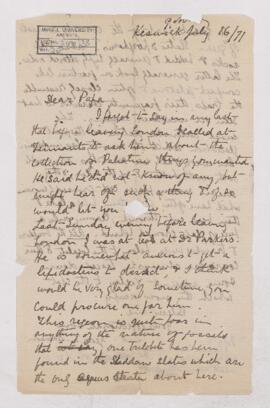 McGILL UNIVERSITY
ARCHIVES
Keswick July 26/71
Dear Papa
I forgot to say in my last
that before leaving London I called at
to ask him about the
collection of Palestine things you wanted
He said he did not know of any but
would let you
Last Sunday evening before leaving
London I was at tea at Dr Parkers.
He is somewhat anxious to get a
lepidosteus to dissect & I think
would be very glad if sometime you
could procure one for him.
This region is quite poor in
anything of the nature of fossils
one trilobite has been
found in the Skiddaw slates which are
the only about here.